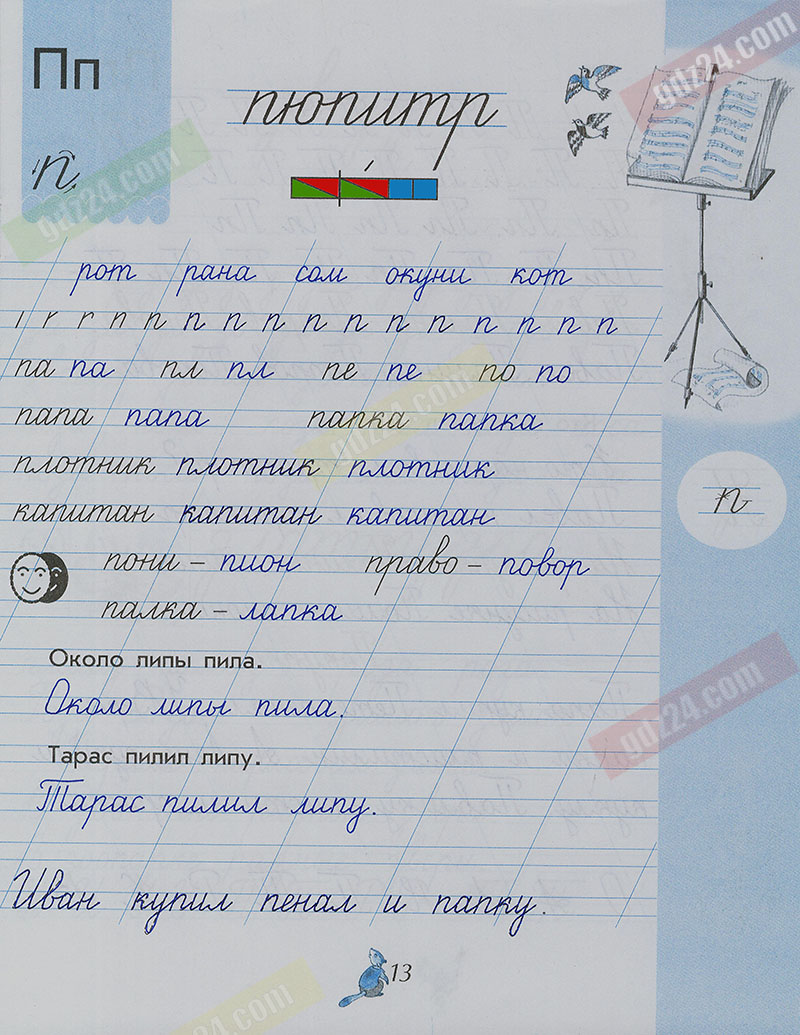 Пп
пюпитр
п
рот рана сом окуни кот
п п п п п п п п п п п п п
па па пл пл пе пе по по
папа папа папка папка
плотник плотник плотник
капитан капитан капитан
п
пони – пион право – повор
палка – лапка
Около липы пила.
Около липы пила.
Тарас пилил липу.
Тарас пилил липу.
Иван купил пенал и папку.
13
gdz24.com
gdz24.com
gdz24.com
gdz24.com
gdz24.com